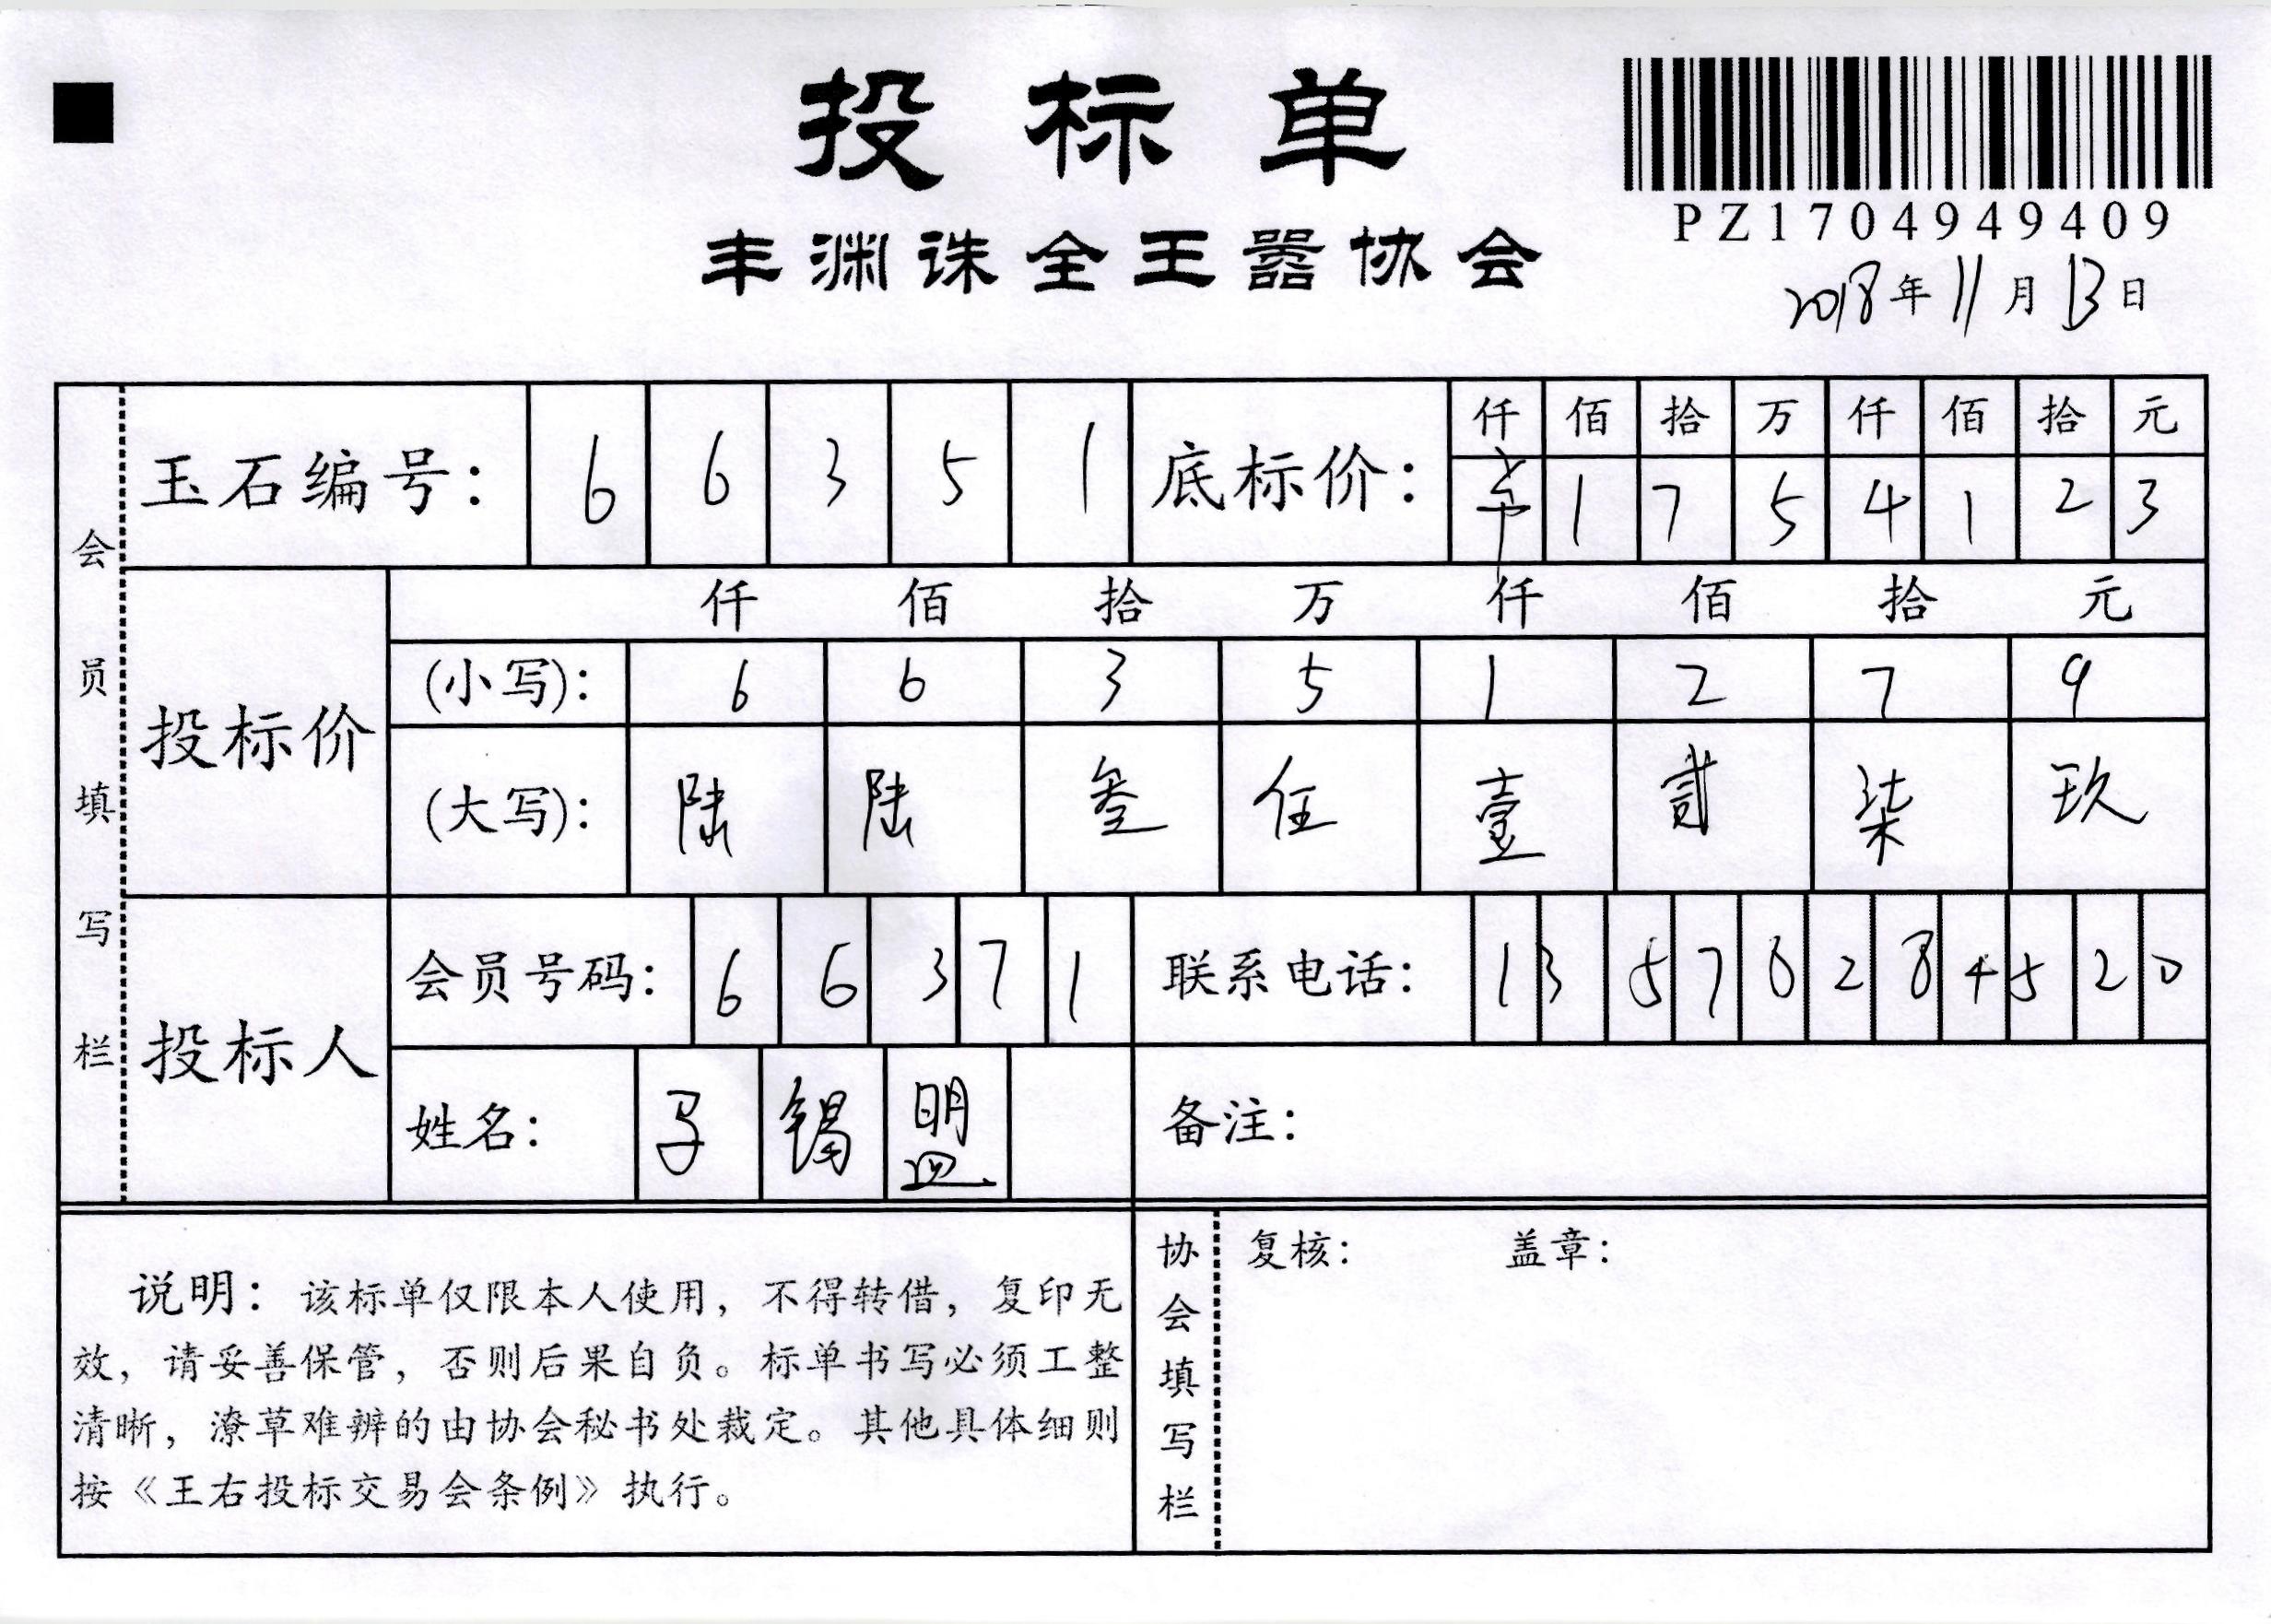 投标单
PZ1704949409
丰渊诛全王嚣协会
2018年11月13日
会员填写栏
玉石编号: 6 6 3 5 1
底标价: 仟 佰 拾 万 仟 佰 拾 元
1 7 5 4 1 2 3
投标价
仟 佰 拾 万 仟 佰 拾 元
(小写): 6 6 3 5 1 2 7 9
(大写): 陆 陆 叁 伍 壹 贰 柒 玖
投标人
会员号码: 6 6 3 7 1
联系电话: 1 3 5 7 6 2 8 4 5 2 0
姓名:
备注:
说明: 该标单仅限本人使用, 不得转借, 复印无
效, 请妥善保管, 否则后果自负。标单书写必须工整
清晰, 潦草难辨的由协会秘书处裁定。其他具体细则
按《王右投标交易会条例》执行。
协会填写栏
复核: 盖章: